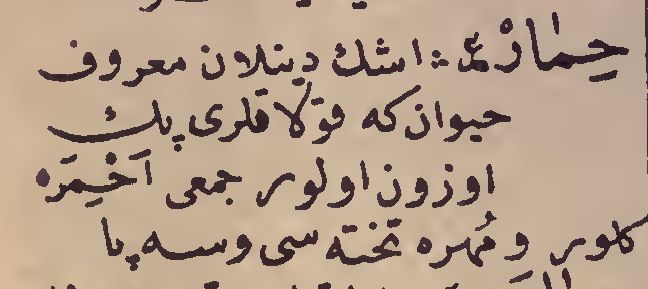 حِمَارْ ع : اشك دينلان معروف
حيوان كه قولاقلرى پك
اوزون اولور جمعى اَحْمِرَه
كلور و مُهره تخته سى و سه پا